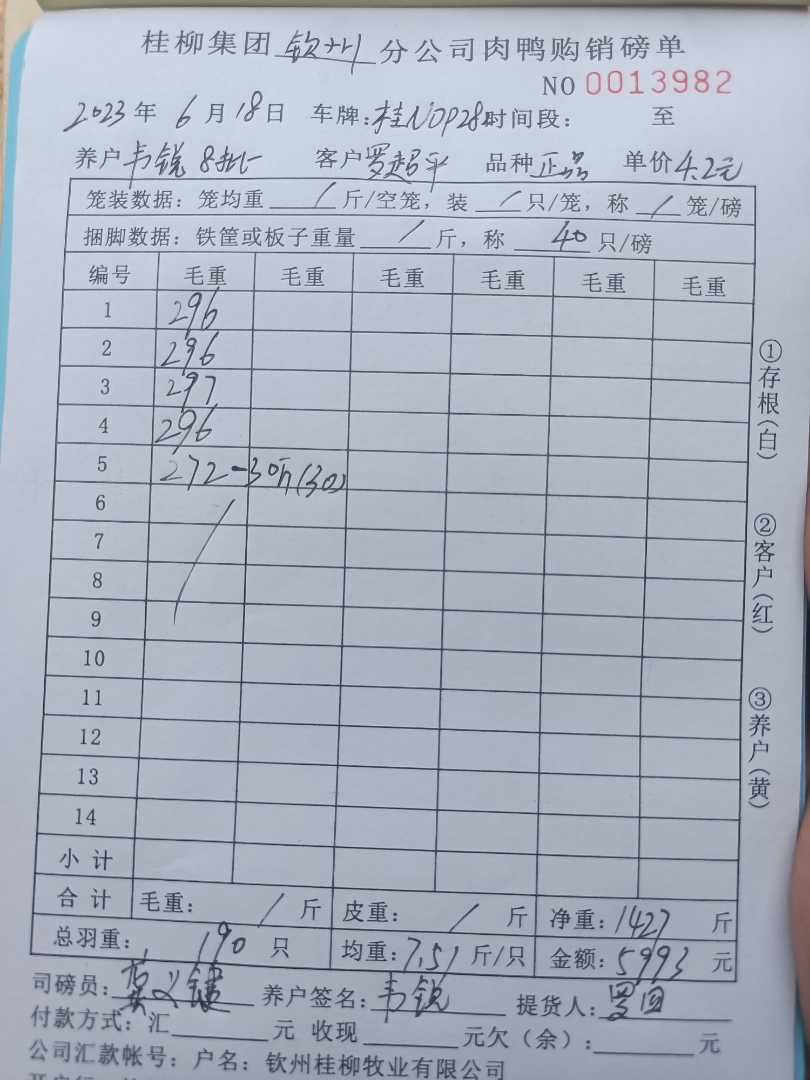 桂柳集团 钦州 分公司肉鸭购销磅单
NO 0013982
2023年 6月18日 车牌:桂N0P28 时间段: 至
养户韦锐 8批 客户罗超平 品种正品 单价4.2元
笼装数据: 笼均重 / 斤/空笼, 装 / 只/笼, 称 / 笼/磅
捆脚数据: 铁筐或板子重量 / 斤, 称 40 只/磅
编号 毛重 毛重 毛重 毛重 毛重 毛重
1 296
2 296
3 297
4 296
5 272-3斤(30)
6
7
8
9
10
11
12
13
14
小计
合计 毛重: / 斤 皮重: / 斤 净重:1427 斤
总羽重: 190 只 均重:7.51 斤/只 金额:5993 元
司磅员: 养户签名:韦锐 提货人:
付款方式: 汇 元 收现 元欠(余): 元
公司汇款帐号: 户名: 钦州桂柳牧业有限公司
①存根(白)
②客户(红)
③养户(黄)